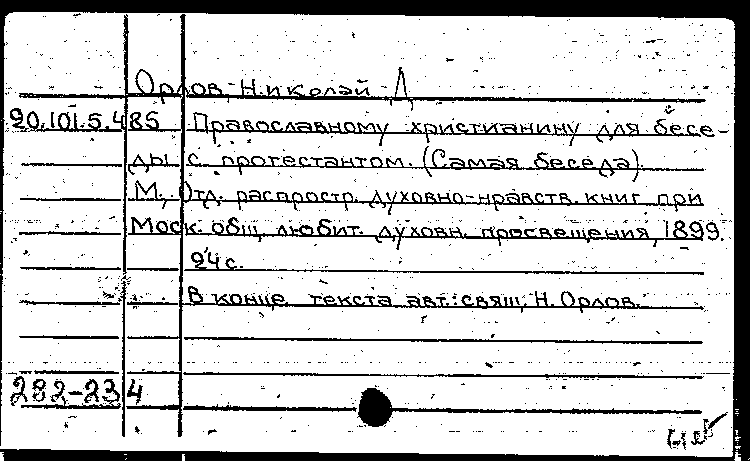 Орлов, Николай Д.
20.101.5.485 Православному христианину для бесе-
ды с протестантом. (Самая беседа)
М., Отд. распростр. духовно-нравств. книг при
Моск. общ. любит. духовн. просвещения, 1899.
24 с.
В конце текста авт.: свящ. Н. Орлов.
282-234